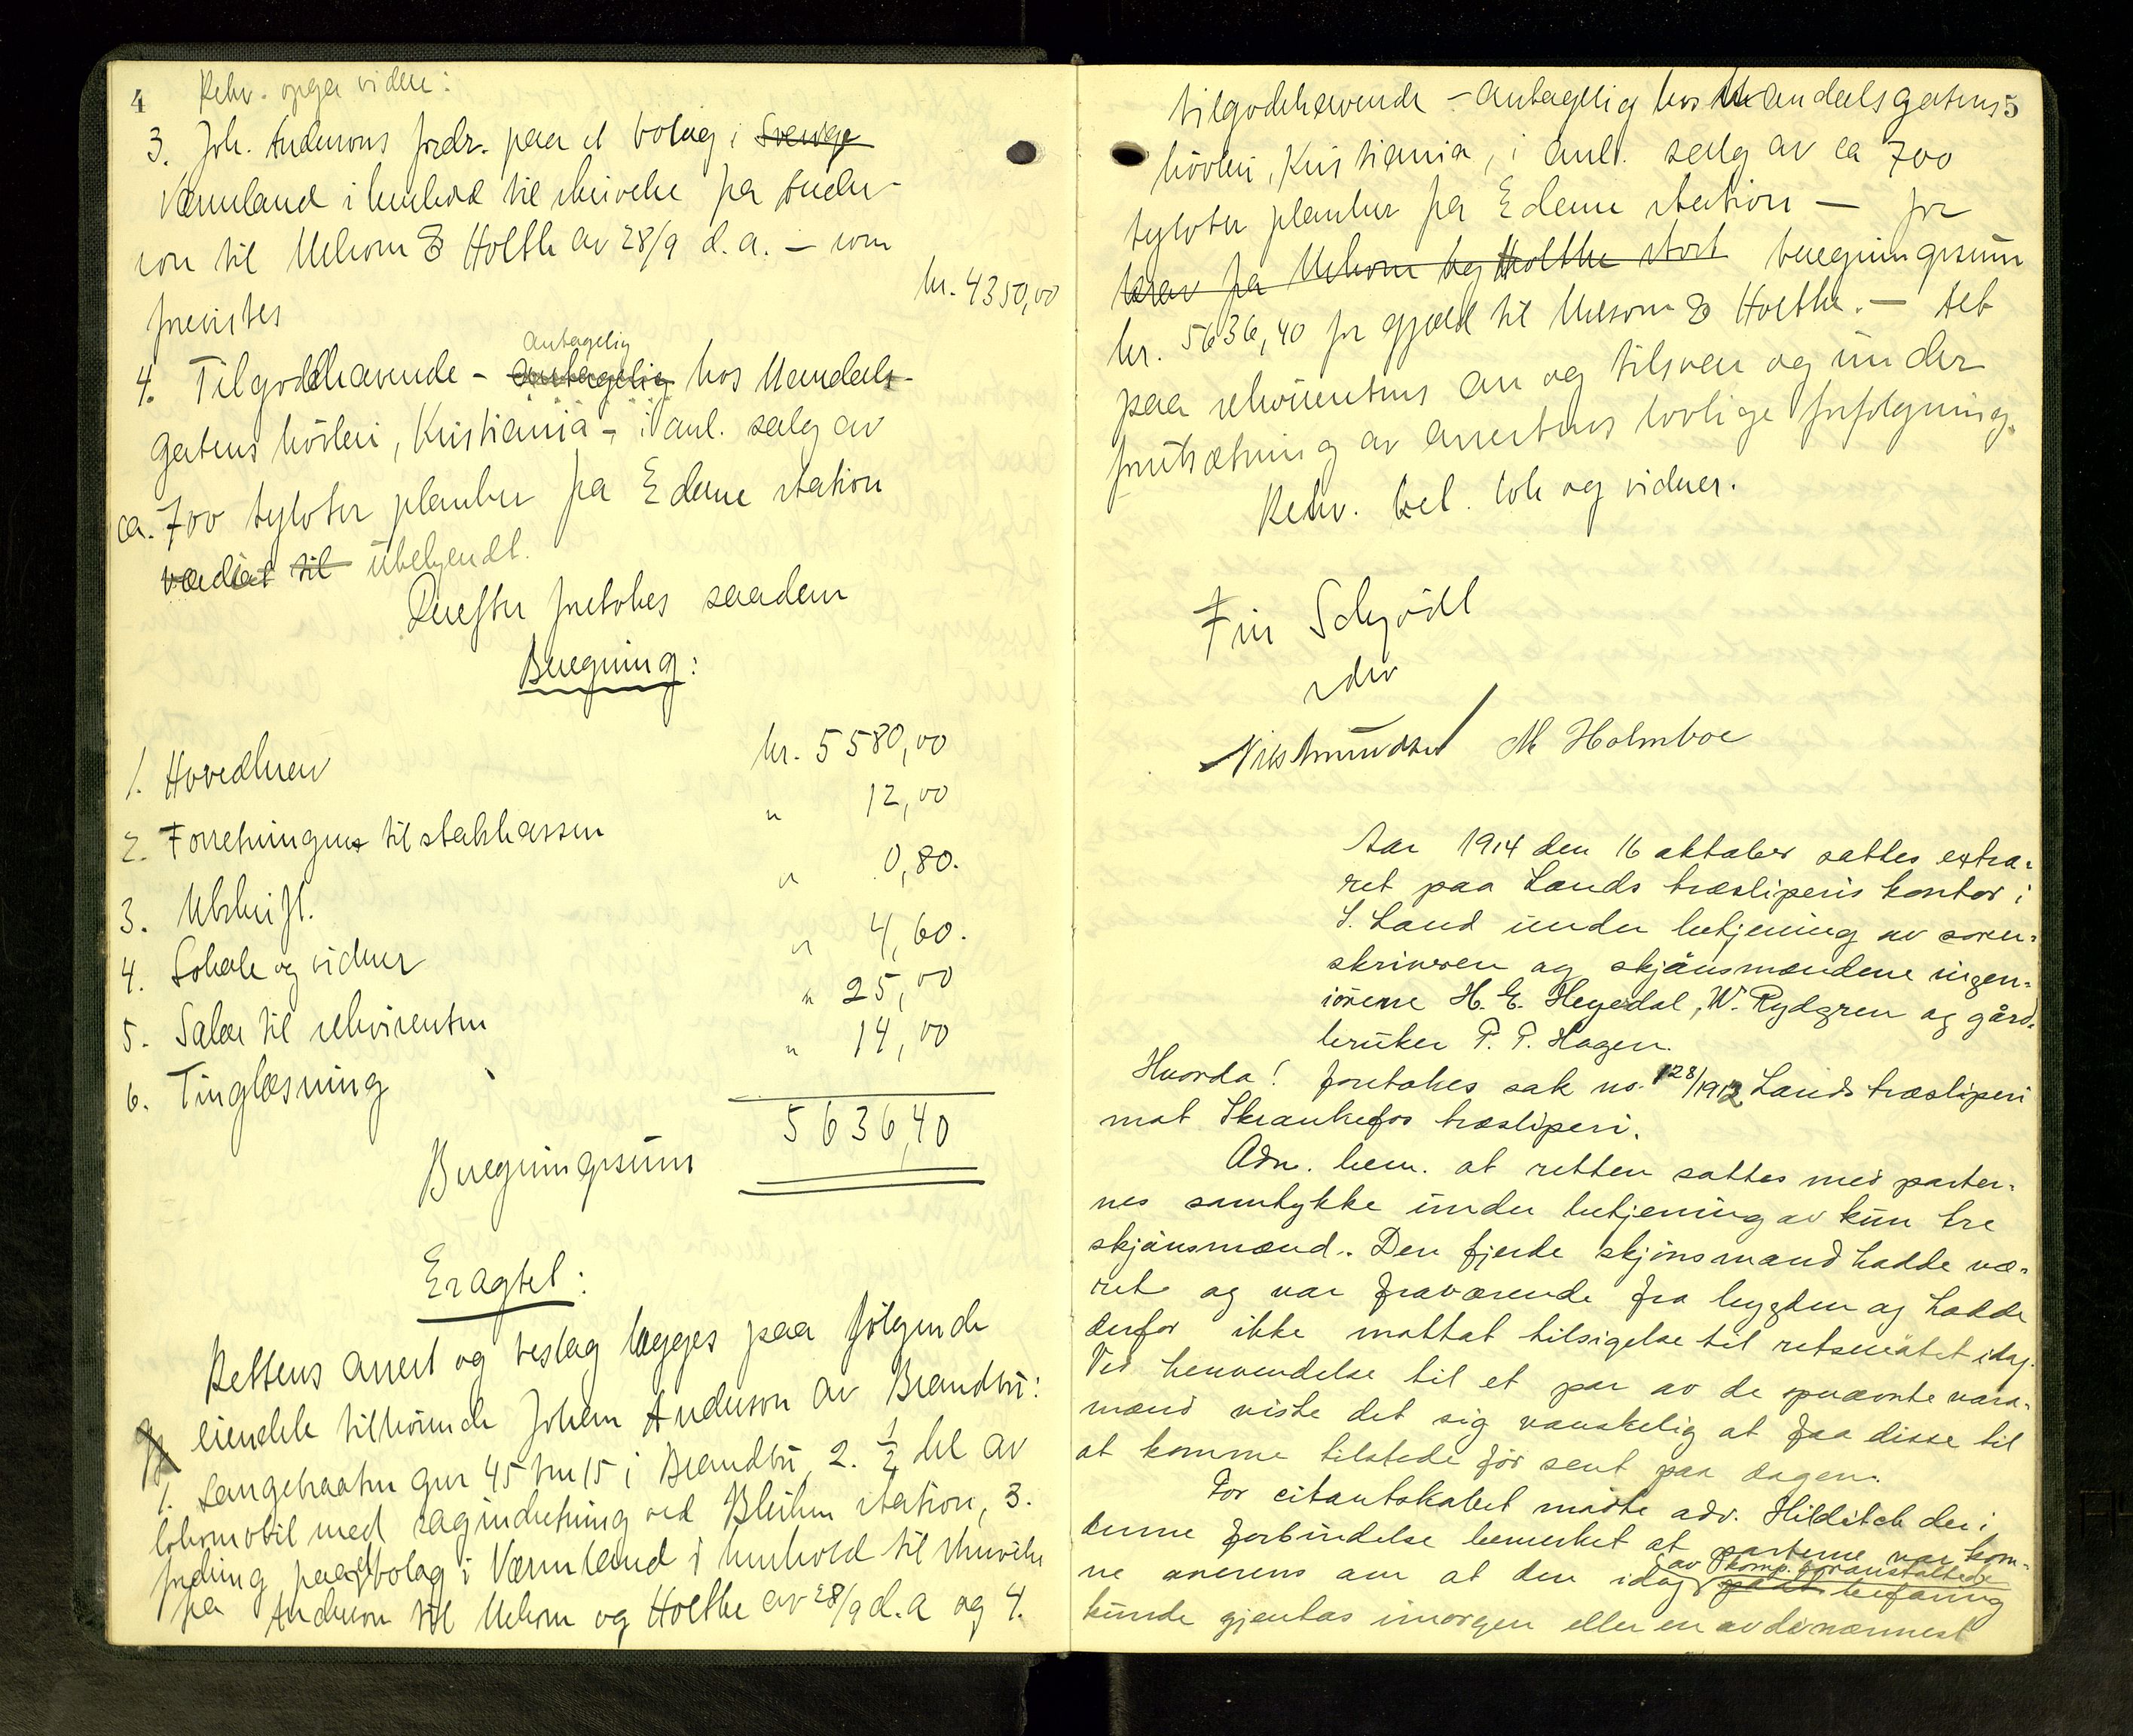 4
Rekv. opga videre:
3. Joh. Andersons fordr. paa et bolag i Sverige
Værmland i henhold til skrivelse fra Ander-
son til Melsom & Holthe av 28/9 d.a. – som
forevistes
kr. 4350,00
antagelig
4. Tilgodehavende – antagelig hos Mandals-
gatens hövleri, Kristiania – i anl. salg av
ca. 700 tylvter planker fra Edane station
værdiat til ubekjendt.
Derefter foretokes saadan
Beregning:
1. Hovedkrav kr. 5580,00
2. Forretningens til statskassen " 12,00
3. Utskrift. " 0,80.
4. Lokale og vidner " 4,60.
5. Salær til rekvirenten " 25,00
6. Tinglæsning " 14,00
Beregningssum 5636,40
Eragtet:
Rettens arrest og beslag lægges paa følgende
eiendele tilhörende Johan Anderson av Brandbu:
1. Langebraaten gnr 45 bnr 15 i Brandbu, 2. ½ del av
lokomobil med sagindretning ved Bleiken station, 3.
fordring paa et bolag i Værmland i henhold til skrivelse
fra Anderson til Melsom og Holthe av 28/9 d.a og 4.
5
tilgodehavende – antagelig hos Mandalsgatens
hövleri, Kristiania, i anl. salg av ca 700
tylvter planker fra Edane station – for
krav fra Melsom og Holthe stort beregningssum
kr. 5636,40 for gjæld til Melsom & Holthe. – Alt
paa rekvirentens an og tilsvar og under
forutsætning av arrestens lovlige forfölgning.
Rekv. bet. lok og vidner.
Finn Schjödt
adv
Nils Amundsen M Holmboe
Aar 1914 den 16 oktober sattes extra-
ret paa Lands træsliperis kontor i
S. Land under betjening av soren-
skriveren og skjönsmændene ingen-
iörerne H. E. Heyerdal, W. Rydgren og gård-
bruker P. P. Hagen.
Hvorda! foretokes sak no. 128/1912 Lands træsliperi
mot Skrankefos træsliperi.
Adm. bem. at retten sattes med parter-
nes samtykke under betjening av kun tre
skjönsmænd. Den fjerde skjönsmand hadde væ-
ret og var fraværende fra bygden og hadde
derfor ikke mottat tilsigelse til retsmötet idag.
Ved henvendelse til et par av de opnævnte vara-
mænd viste det sig vanskelig at faa disse til
at komme tilstede för sent paa dagen.
For citantskabet mötte adv. Hilditch der i
denne forbindelse bemerket at parterne var kom-
av komp. foranstaltede
ne overens om at den idag befaring
kunde gjentas imorgen eller en av de nærmest